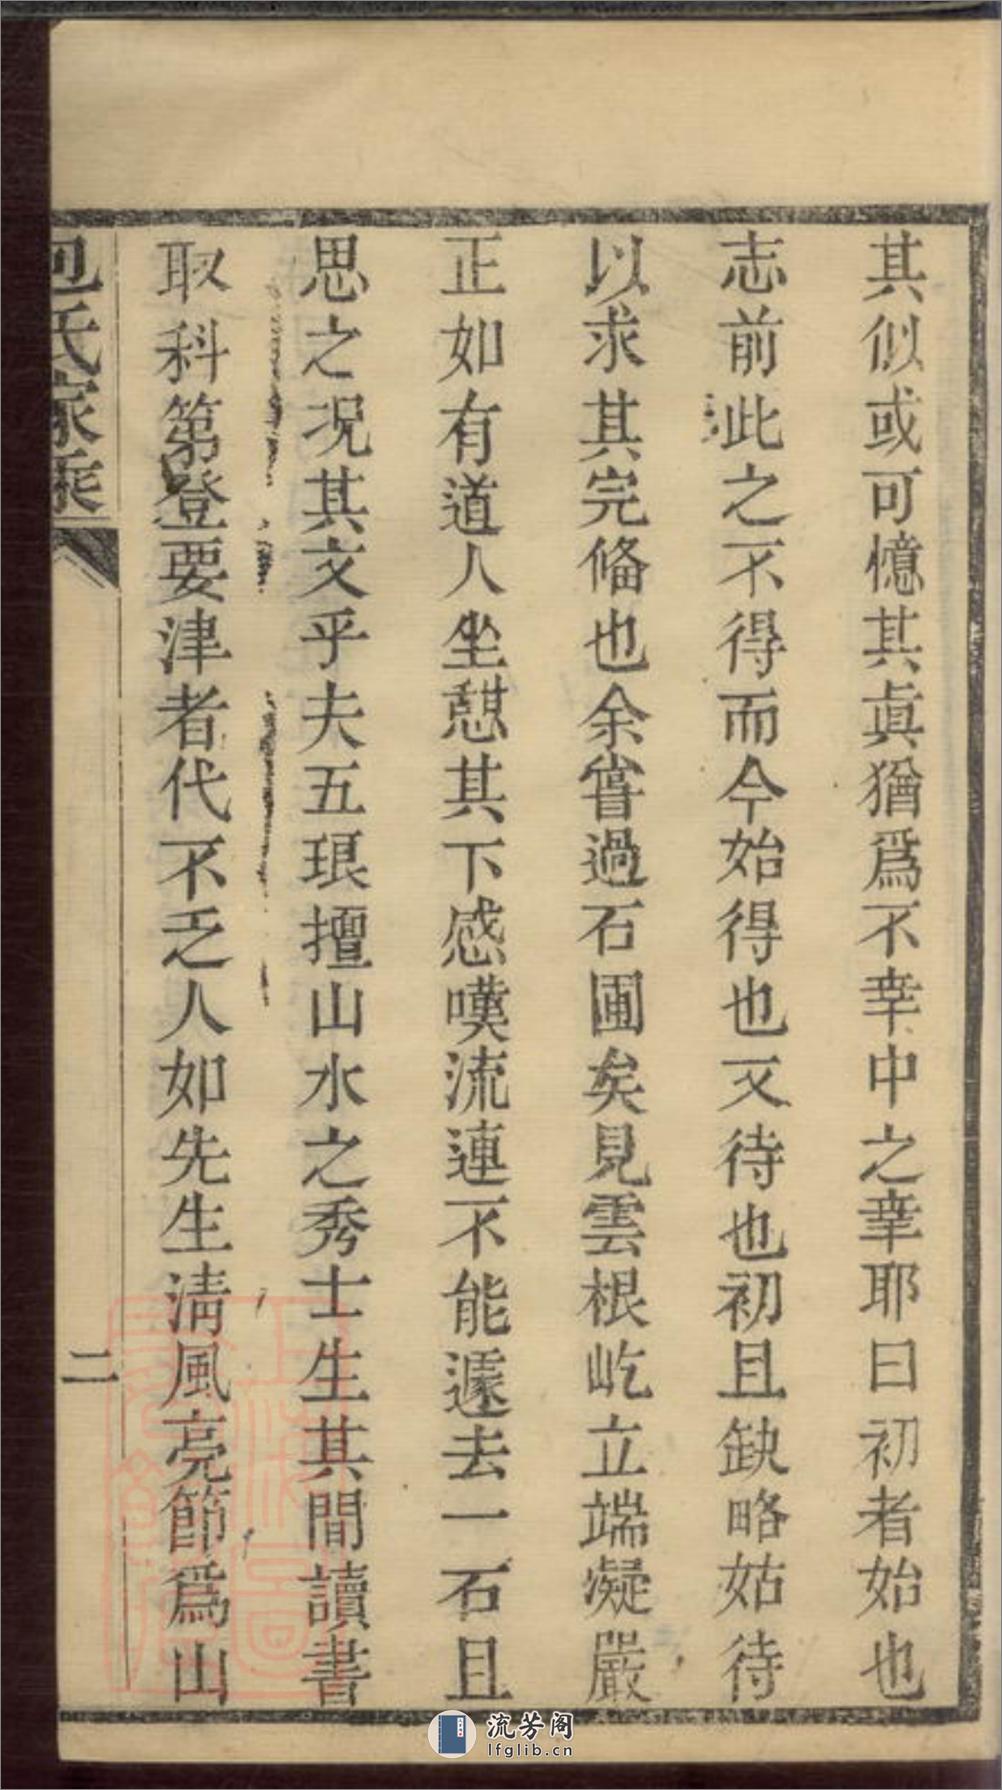 其似或可憶其眞猶爲不幸中之幸耶曰初者始也
志前此之不得而今始得也又待也初且缺略姑待
以求其完備也余嘗過石圃矣見雲根屹立端凝嚴
正如有道人坐憩其下感嘆流連不能遽去一石且
思之况其文乎夫五琅擅山水之秀士生其間讀書
取科第登要津者代不乏人如先生清風亮節爲山
包氏家乘
二
流芳阁
lfglib.cn